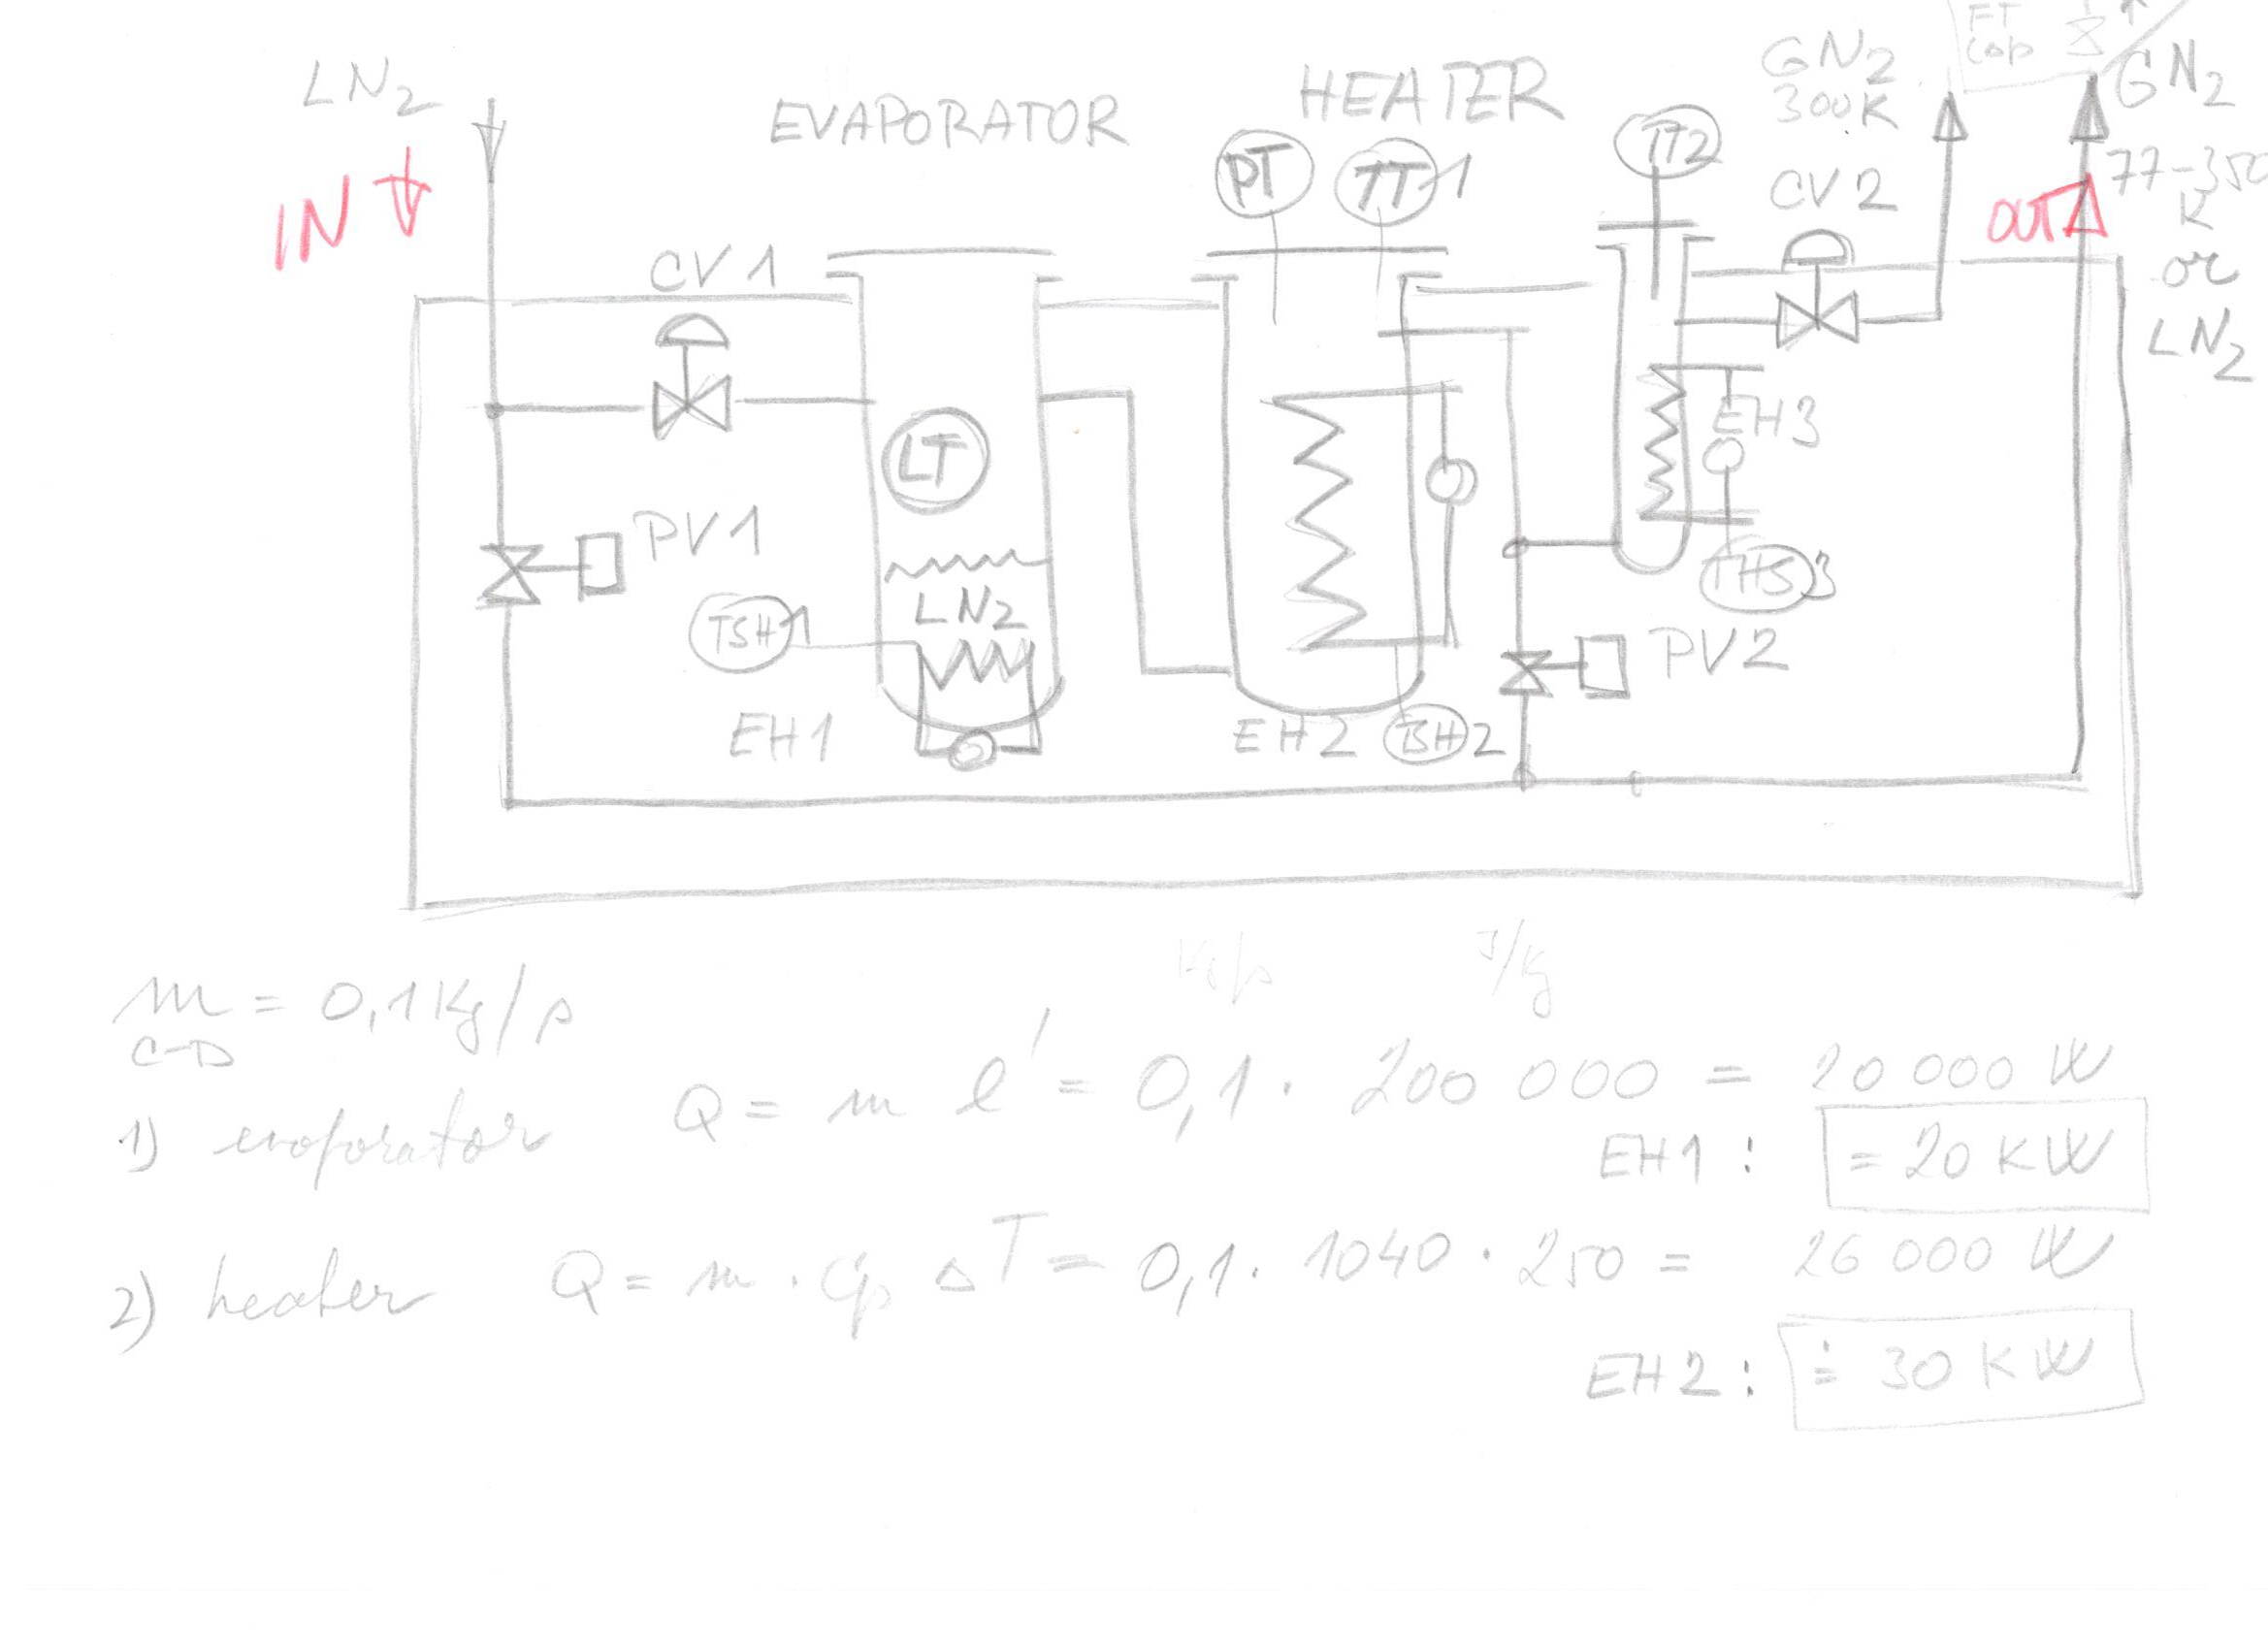 LN2
IN
EVAPORATOR
HEATER
GN2
300K
GN2
77-350
K
or
LN2
OUT
PT
TT1
TT2
CV2
CV1
LT
EH3
PV1
LN2
TSH1
THS3
PV2
EH1
EH2
TSH2
kg/s J/kg
m = 0,1 Kg/s
C-D
1) evaporator Q = m l' = 0,1 · 200 000 = 20 000 W
EH1: = 20 KW
2) heater Q = m · Cp ΔT = 0,1 · 1040 · 250 = 26 000 W
EH2: ≐ 30 KW